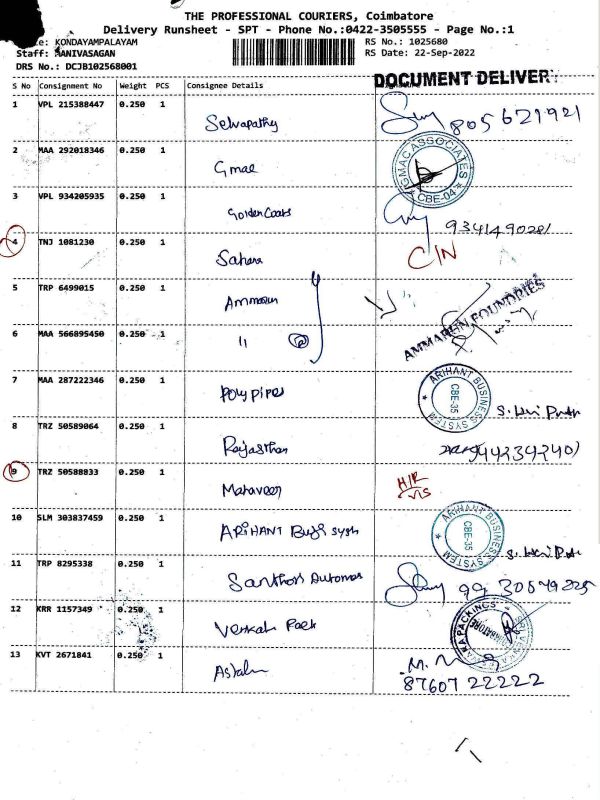 THE PROFESSIONAL COURIERS, Coimbatore
Delivery Runsheet - SPT - Phone No.:0422-3505555 - Page No.:1
KONDAYAMPALAYAM RS No.: 1025680
Staff: MANIVASAGAN RS Date: 22-Sep-2022
DRS No.: DCJB102568001
DOCUMENT DELIVERY
S No Consignment No Weight PCS Consignee Details
1 VPL 215388447 0.250 1 Selvapathy
2 MAA 292018346 0.250 1 Gmac GMAC ASSOCIATES CBE-04
3 VPL 934205935 0.250 1 Golden Coats
4 TNJ 1081230 0.250 1 Sahara C/N
5 TRP 6499015 0.250 1 Ammarun AMMARUN FOUNDRIES
6 MAA 566895450 0.250 1 11 2
7 MAA 287222346 0.250 1 Poly pipes ARIHANT BUSINESS SYSTEM CBE-35
8 TRZ 50589064 0.250 1 Rajasthan
9 TRZ 50588833 0.250 1 Mahaveer
10 SLM 303837459 0.250 1 ARIHANT ARIHANT BUSINESS SYSTEM CBE-35
11 TRP 8295338 0.250 1 Santhosh
12 KRR 1157349 0.250 1 Venkat Pack PACKINGS
13 KVT 2671841 0.250 1
87607 22222